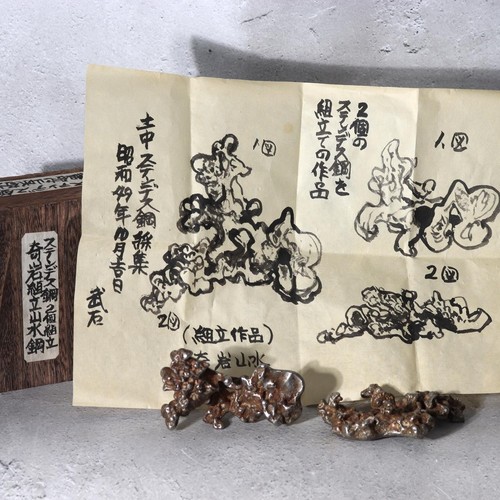 2個の
ステンデス鋼を
組立ての作品
1図
1図
2図
土中ステンデス鋼採集
昭和49年10月吉日
武石
2図
(組立作品)
奇岩山水
ステンデス鋼2個組立
奇岩組立山水鋼